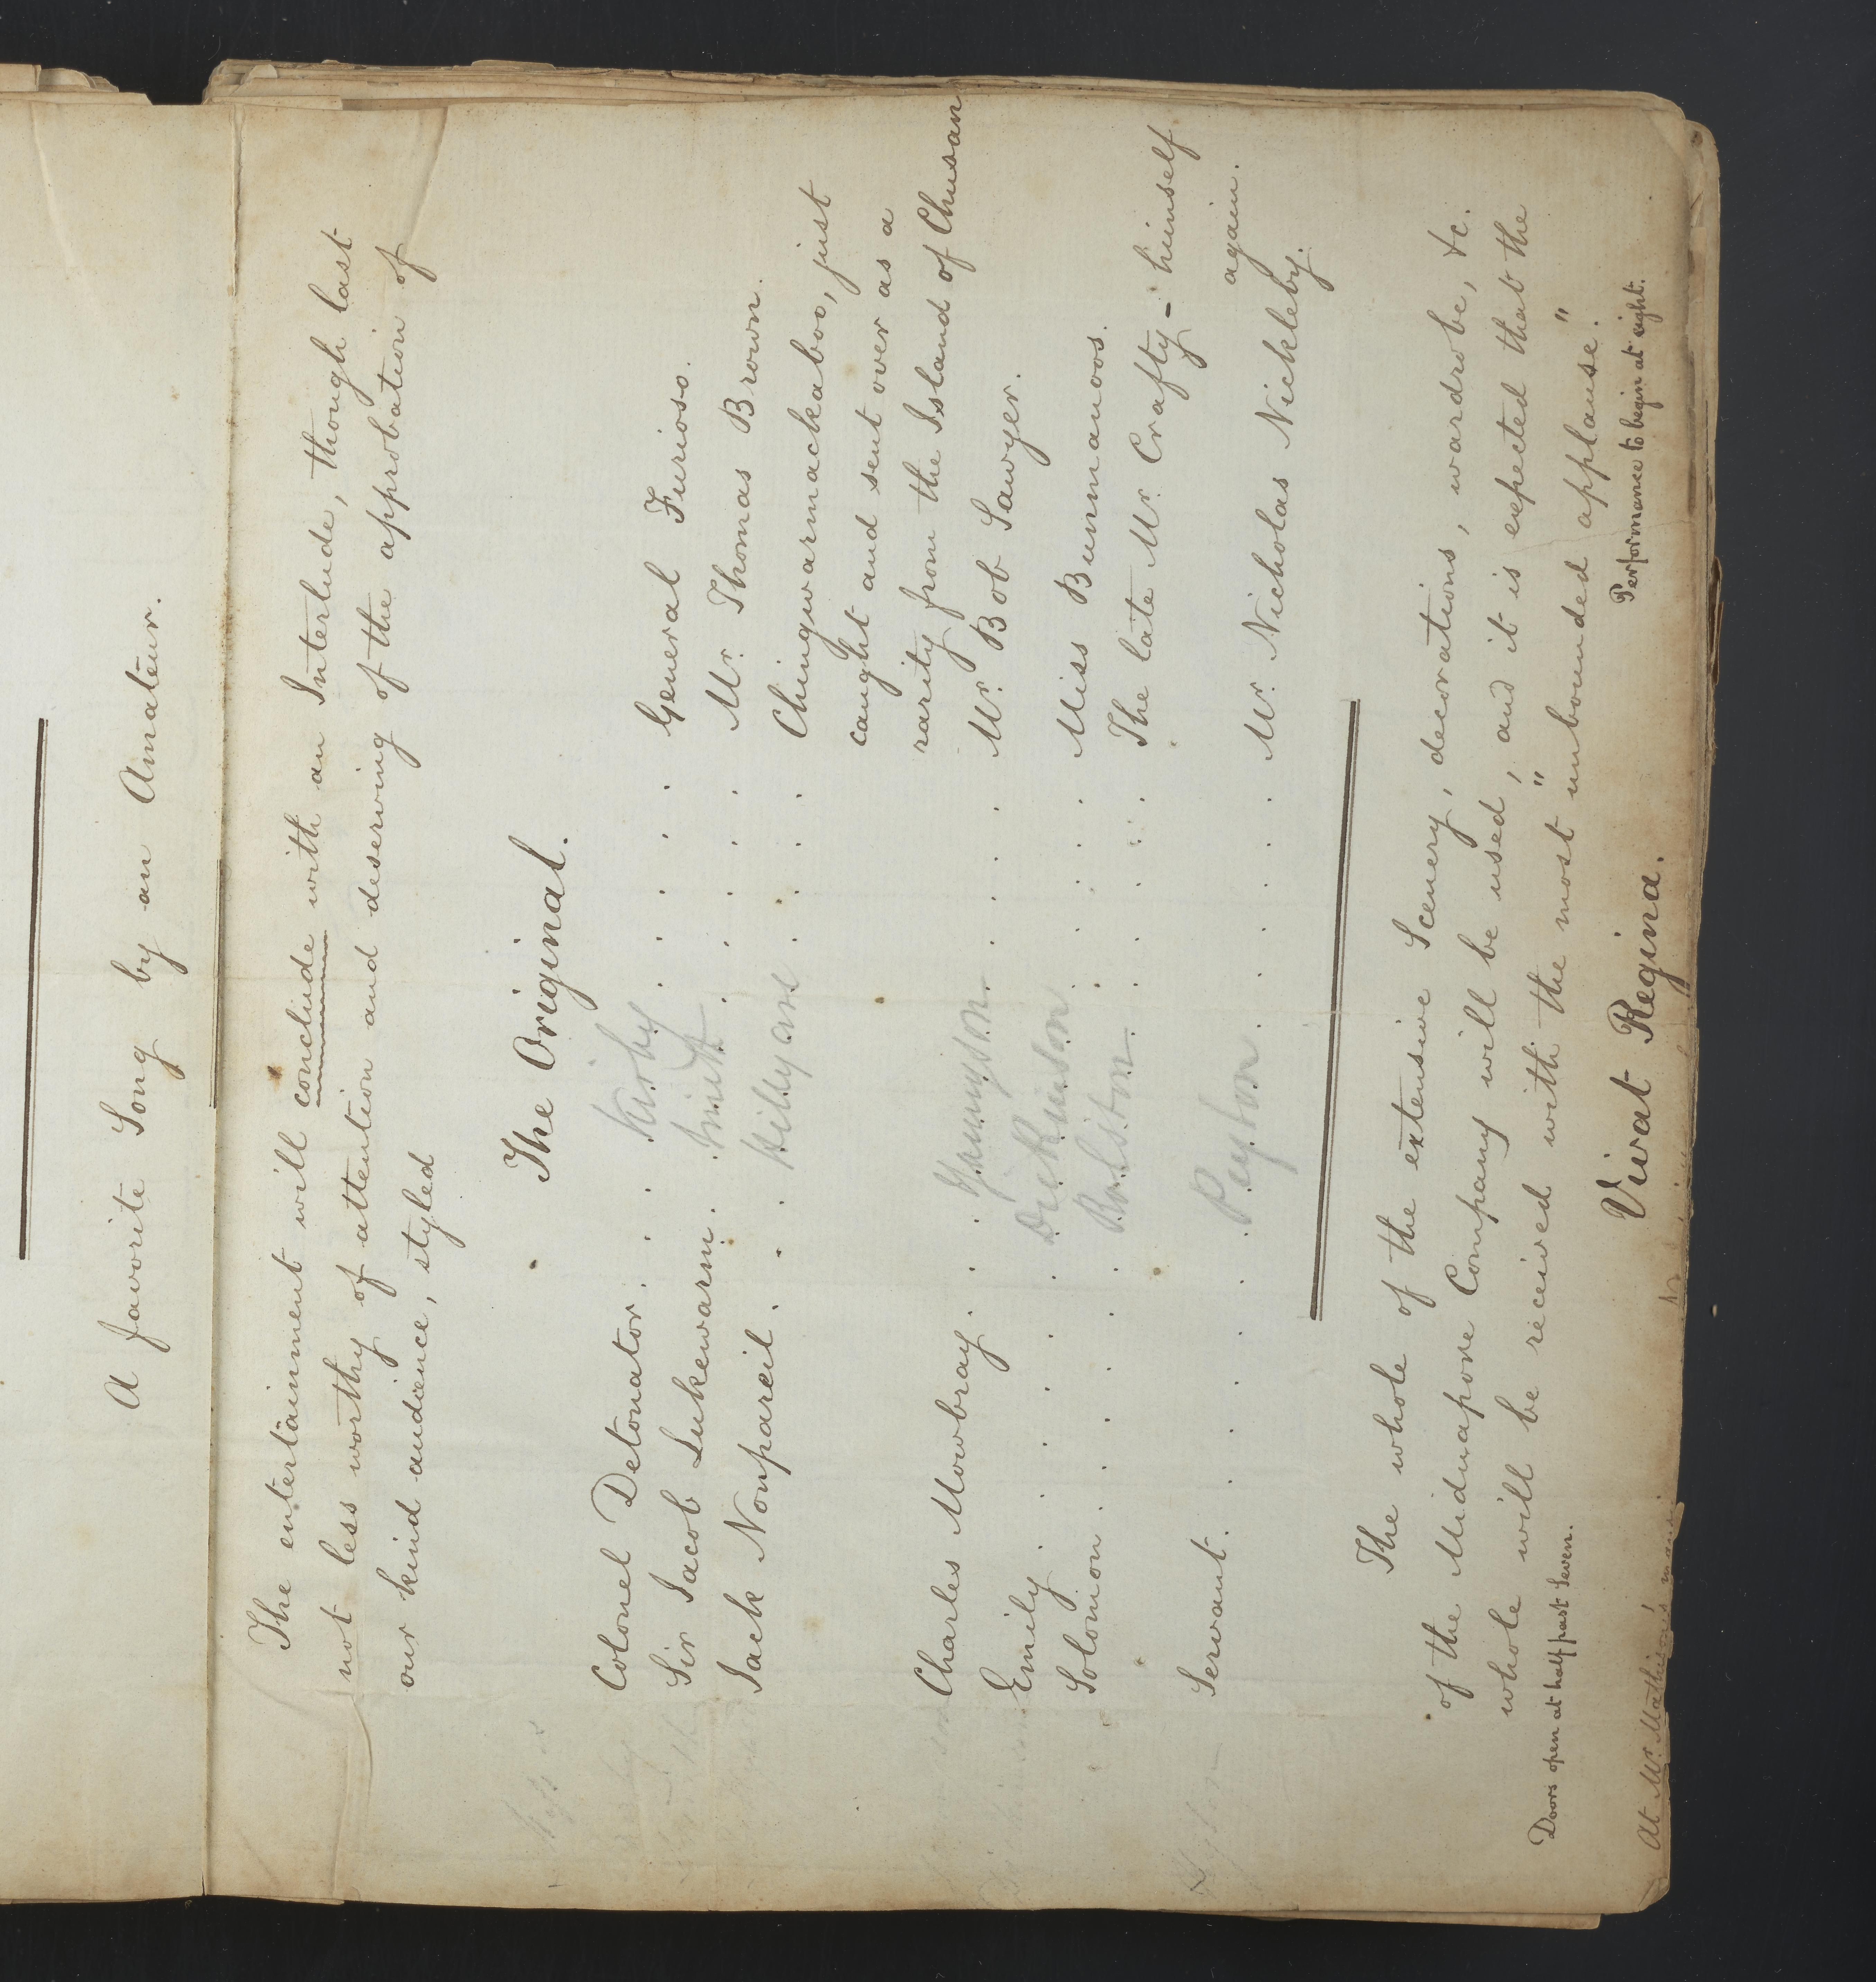 A favorite Song by an Amateur.
The entertainment will conclude with an Interlude, though last
not less worthy of attention and deserving of the approbation of
our kind audience, styled
The Original.
Colonel Detonator . . . Kirby . . . . . General Furioso.
Sir Jacob Lukewarm . Smith . . . . . Mr. Thomas Brown.
Jack Nonpareil . . . Hillyard . . . . Chingwarmackaboo, just
caught and sent over as a
rarity from the Island of Chusan
Charles Mowbray . . . . . . . Mr. Bob Sawyer.
Emily . . . . . Dickinson . . . . Miss Bunmanoos.
Solomon . . . . . Rolston . . . . The late Mr. Crafty - himself
again.
Servant . . . . . Peyton . . . . . Mr. Nicholas Nickleby.
The whole of the extensive Scenery, decorations, wardrobe, &c.
of the Midnapore Company will be used, and it is expected that the
whole will be received with the most "unbounded applause."
Doors open at half past Seven. Performance to begin at eight.
Vivat Regina.
At Mr. Mathison's